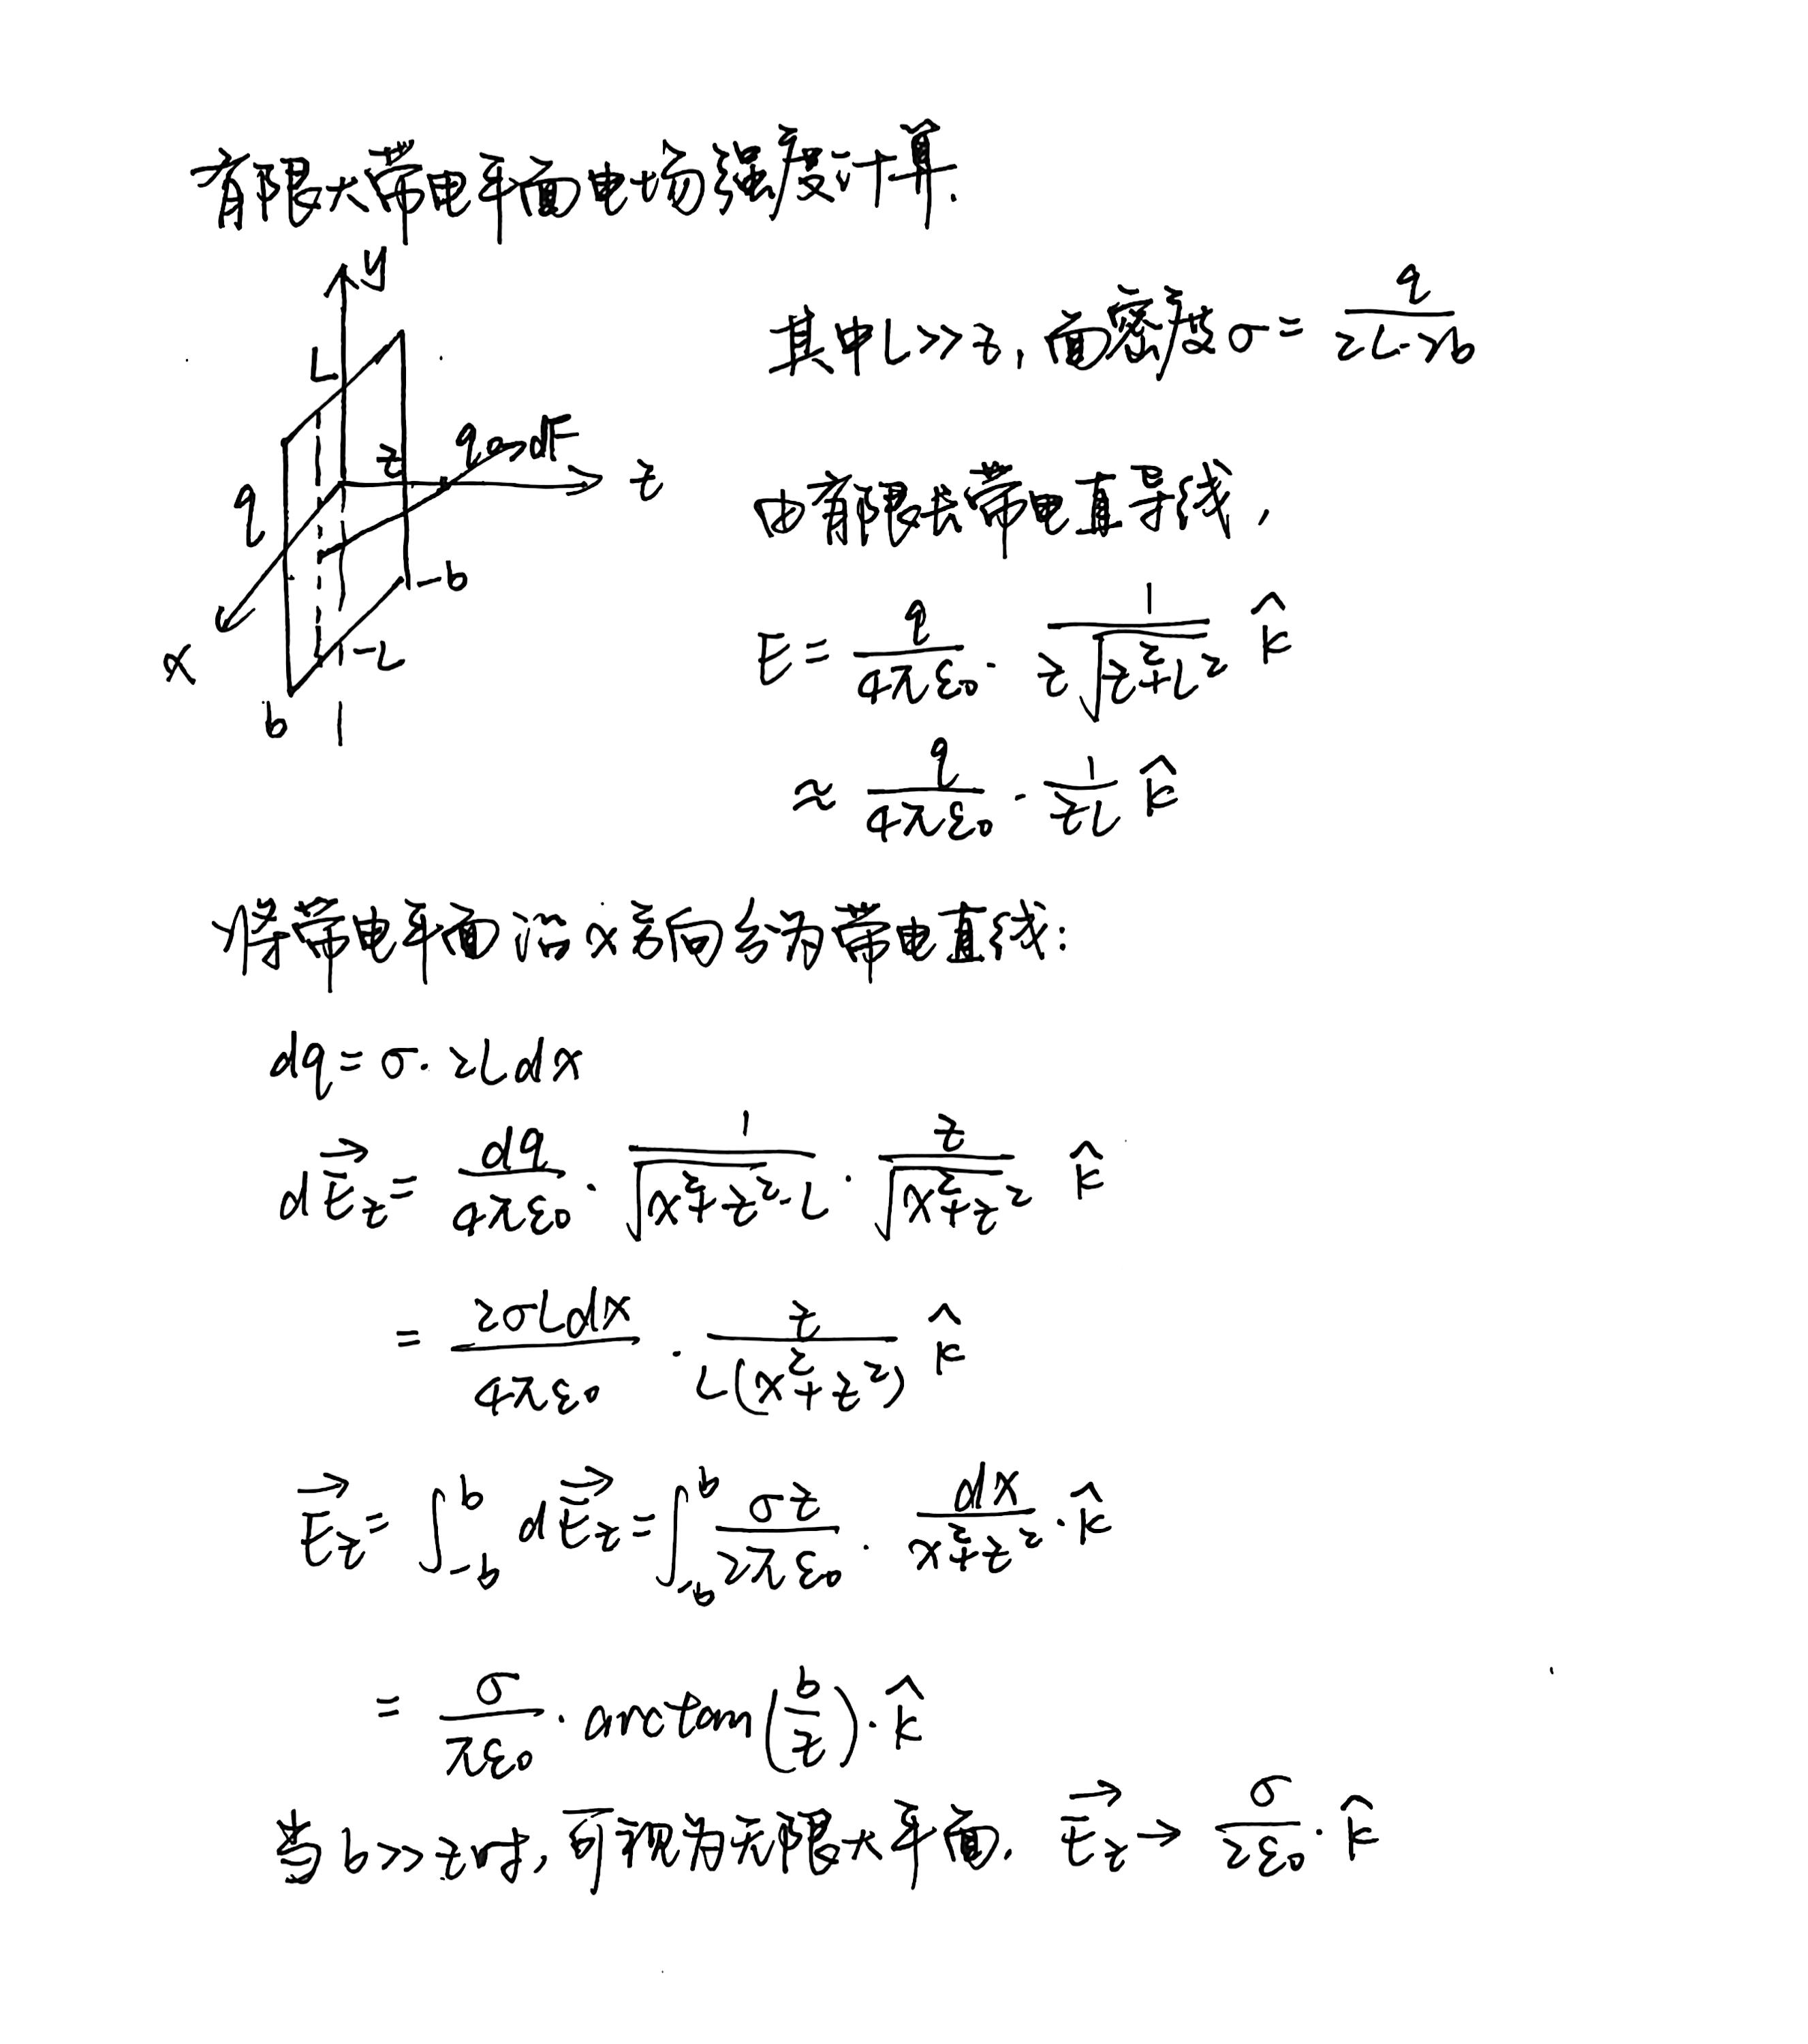 有限大带电平面电场强度计算.
y
L
z
q
z
-b
x
-L
b
其中L>>z, 面密度σ= q/(2L·2b)
由有限长带电直导线,
E = q/(4πε₀) · 1/(z√(z²+L²)) k̂
≈ q/(4πε₀) · 1/(zL) k̂
将带电平面沿x方向分为带电直线:
dq = σ·2Ldx
dE⃗z = dq/(4πε₀) · 1/(√(x²+z²)·L) · z/√(x²+z²) k̂
= 2σLdx/(4πε₀) · z/(L(x²+z²)) k̂
E⃗z = ∫_{-b}^{b} dE⃗z = ∫_{-b}^{b} σz/(2πε₀) · dx/(x²+z²) · k̂
= σ/(πε₀) · arctan(b/z) · k̂
当b>>z时, 可视为无限大平面. E⃗z → σ/(2ε₀) · k̂